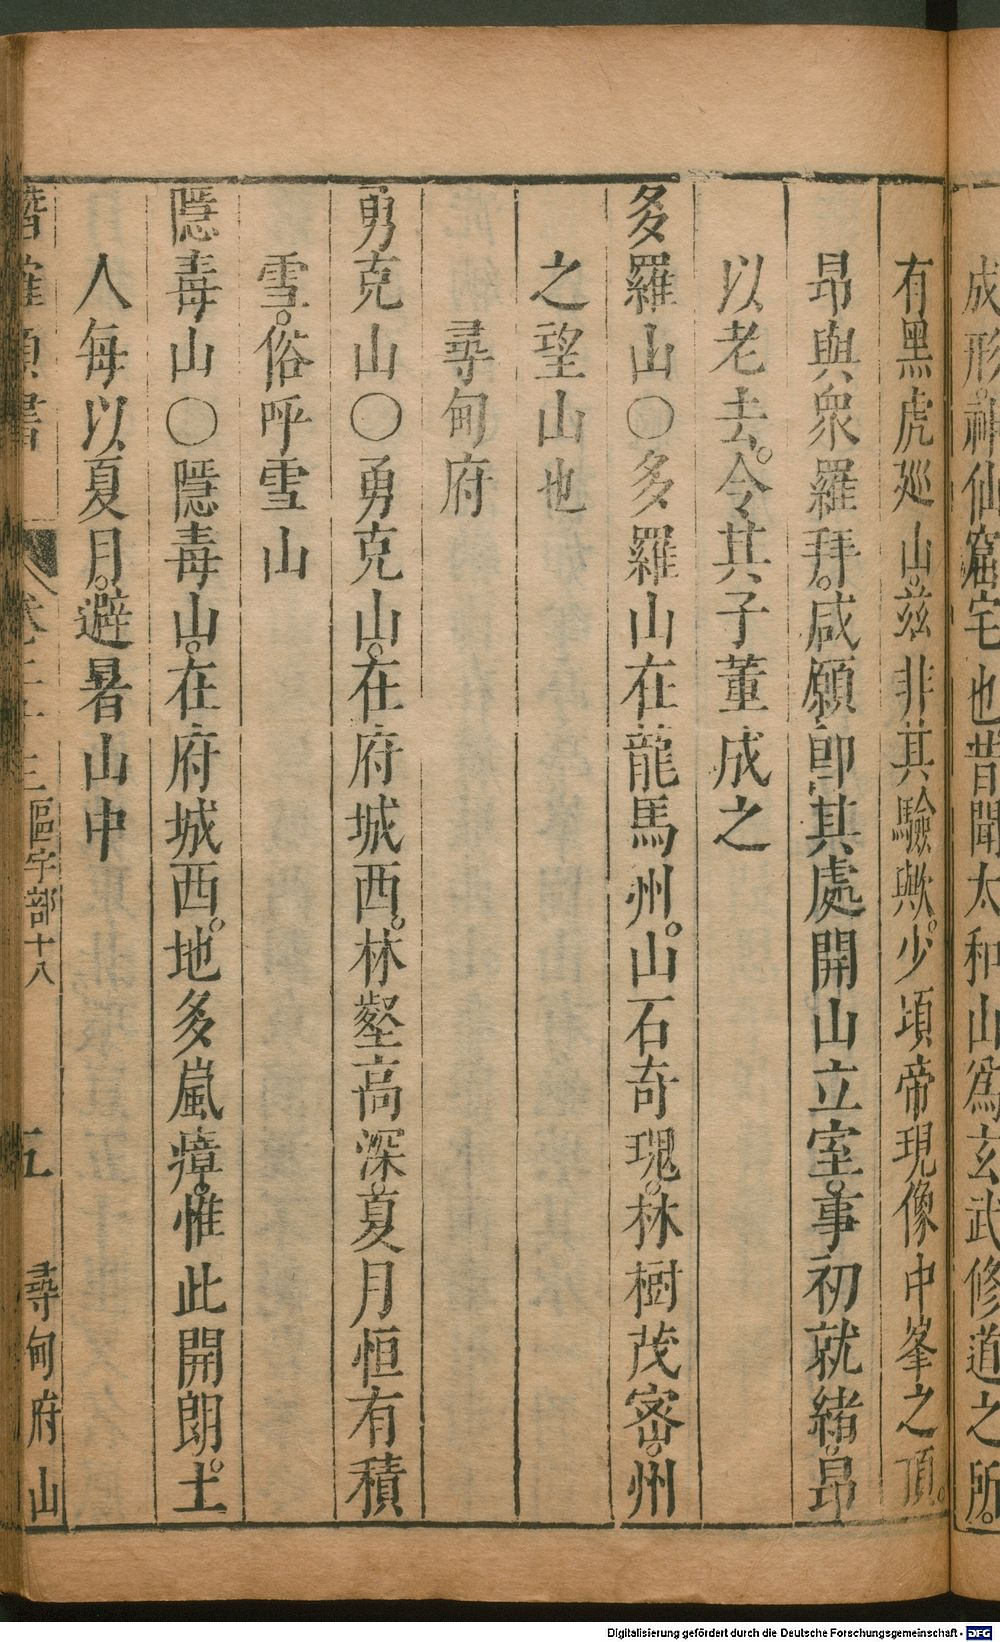 成形神仙窟宅也昔聞太和山爲玄武修道之所。
有黑虎廵山。兹非其驗歟。少頃帝現像中峯之頂。
昂與衆羅拜。咸願卽其處開山立室。事初就緒。昂
以老去。令其子董成之
多羅山○多羅山在龍馬州。山石奇瑰。林樹茂密。州
之望山也
尋甸府
勇克山○勇克山。在府城西。林壑高深。夏月恒有積
雪。俗呼雪山
隱毒山○隱毒山。在府城西。地多嵐瘴。惟此開朗。土
人每以夏月。避暑山中
潛確類書 卷二十三 區宇部十八 五 尋甸府山
Digitalisierung gefördert durch die Deutsche Forschungsgemeinschaft - DFG